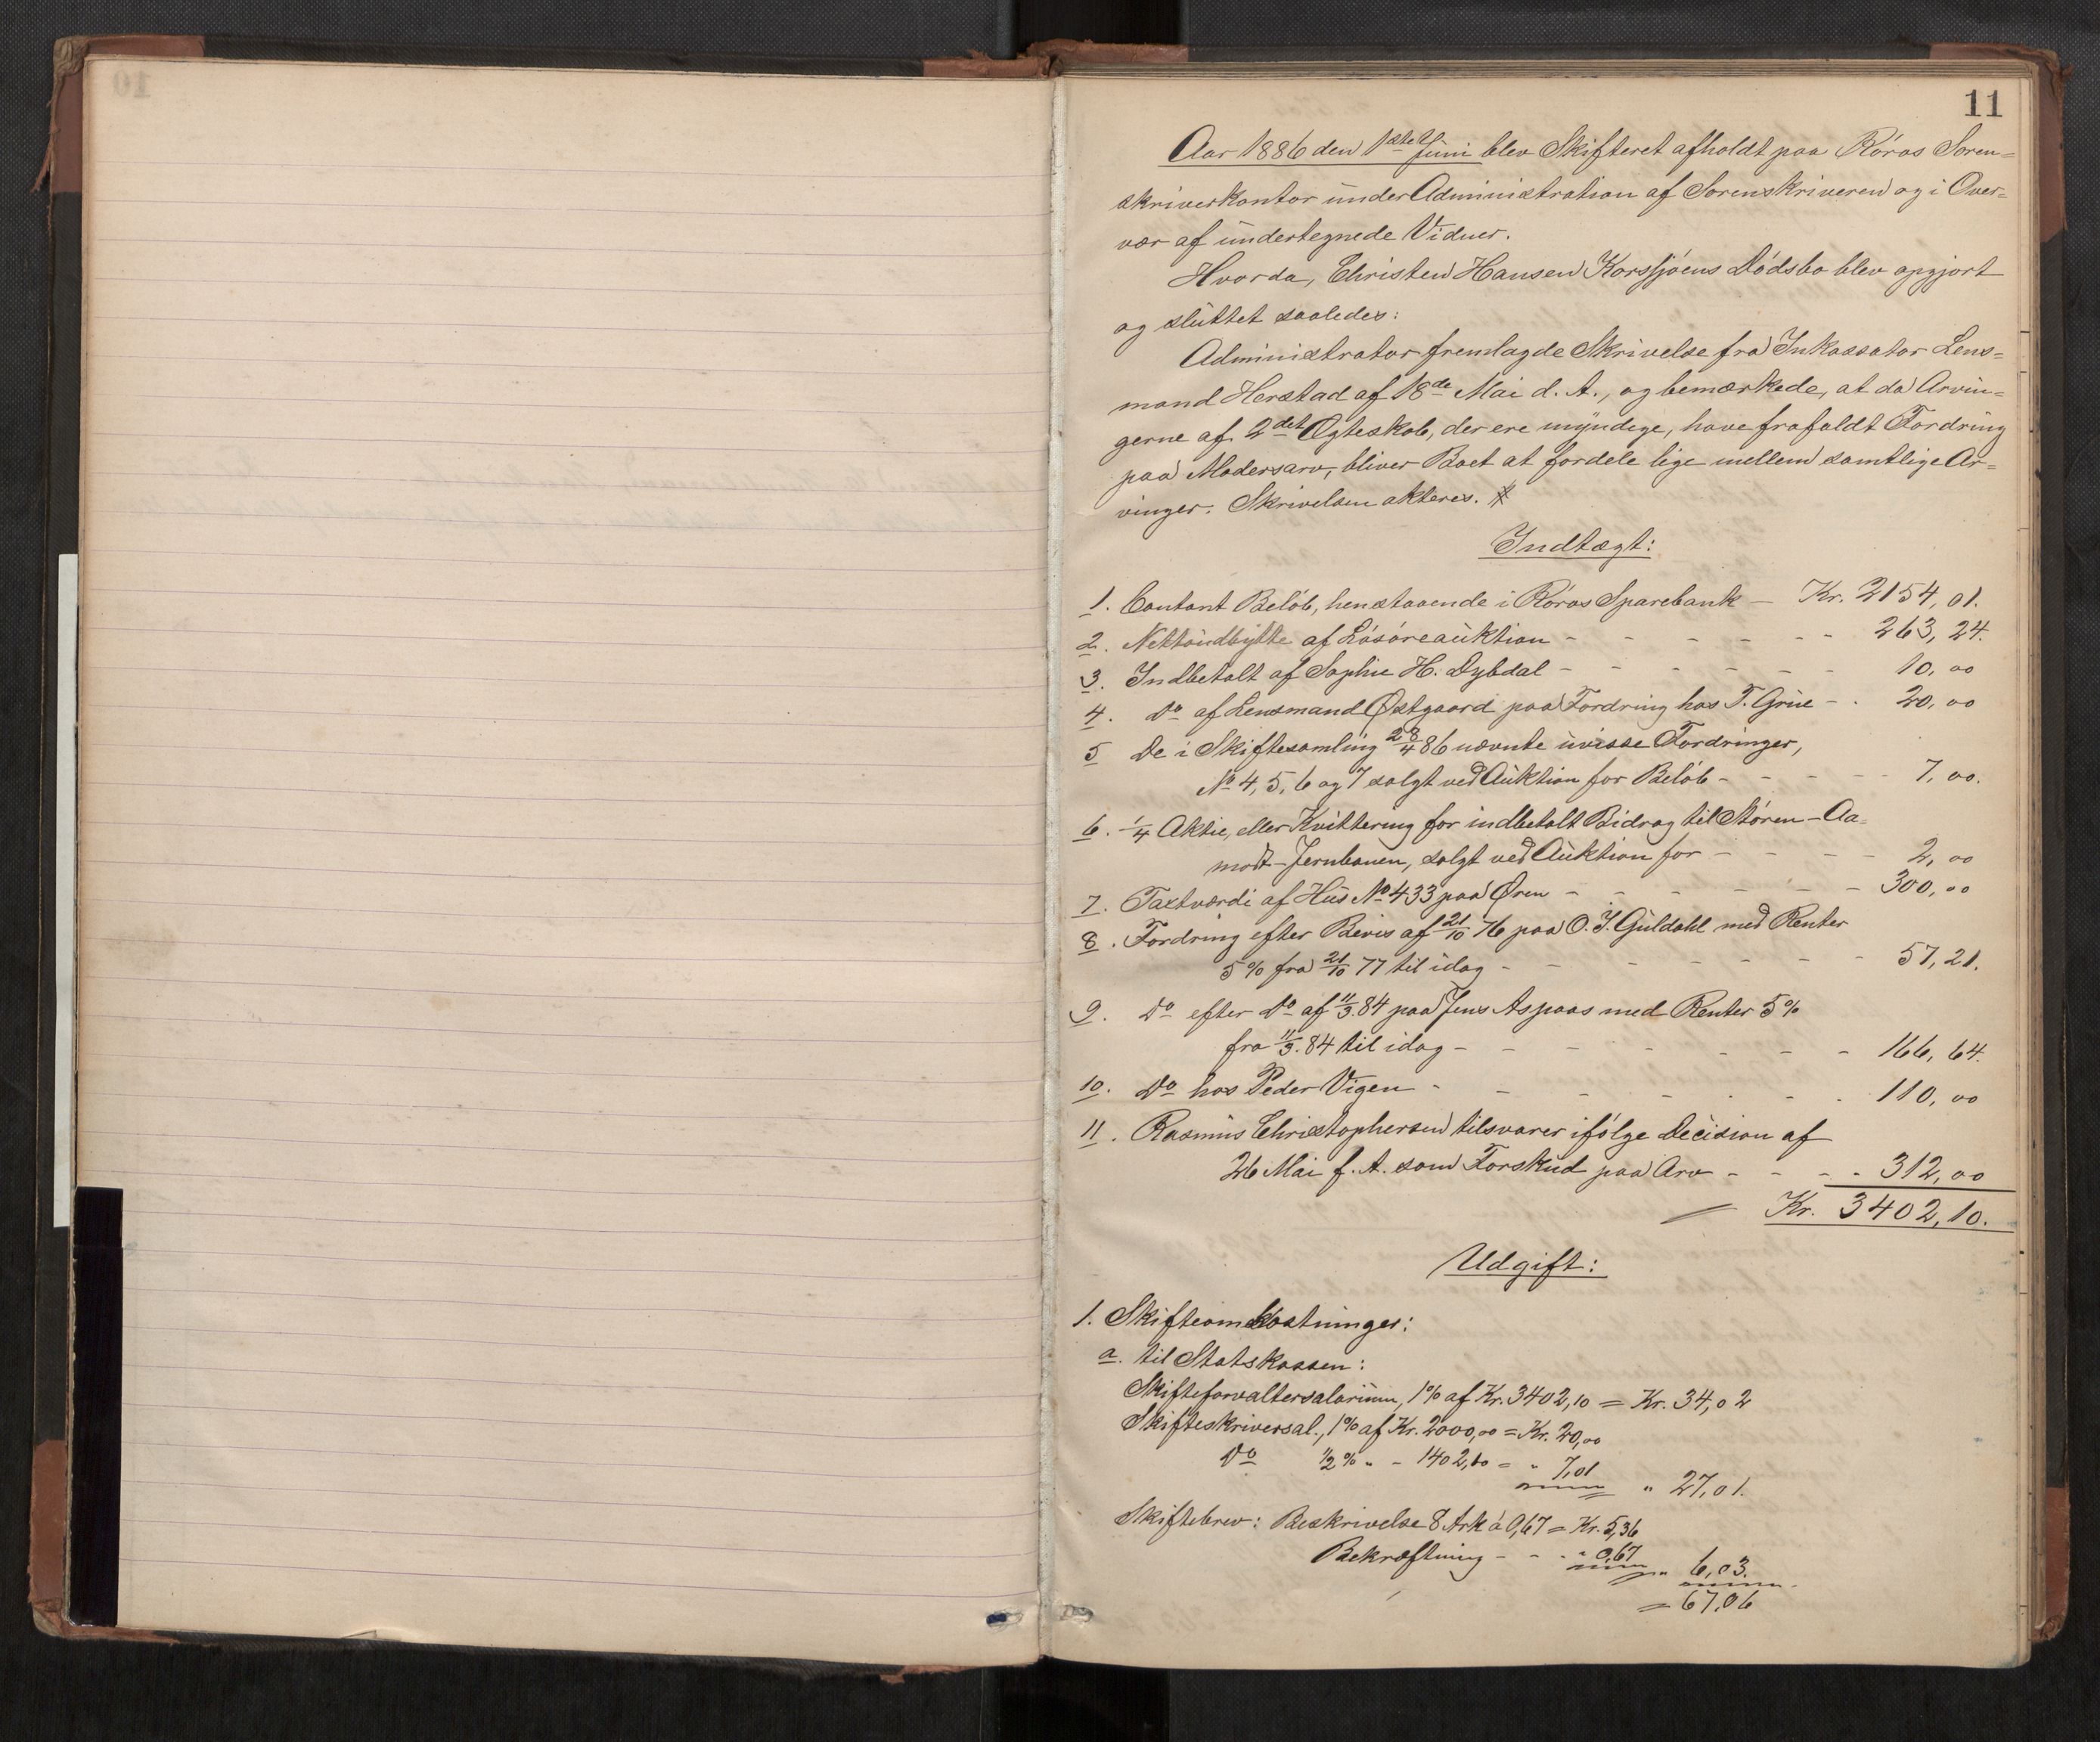 10
11
Aar 1886 den 1ste Juni blev Skifteret afholdt paa Röros Soren=
skriverkontor under Administration af Sorenskriveren og i Over=
vær af undertegnede Vidner.
Hvorda, Christen Hansen Korssjöens Dödsbo blev opgjort
og sluttet saaledes:
Administrator fremlagde Skrivelse fra Inkassator Lens=
mand Herstad af 18de Mai d. A., og bemærkede, at da Arvin=
gerne af 2det Ægteskab, der ere myndige, have frafaldt Fordring
paa Modersarv, bliver Boet at fordele lige mellem samtlige Ar=
vinger. Skrivelsen akteres.
Indtægt:
1. Contant Belöb, henstaaende i Röros Sparebank — Kr. 2154,01.
2. Nettoudbytte af Lösöreauktion - - - - - - 263,24.
3. Indbetalt af Sophie H. Dybdal - - - - - - 10,00
4. Do af Lensmand Østgaard paa Fordring hos T. Grue - . 20,00
5 De i Skiftesamling 28/4 86 nævnte uvisse Fordringer,
No 4, 5, 6 og 7 solgt ved Auktion for Belöb - - - - - 7,00.
6. 1/4 Aktie, eller Kvittering for indbetalt Bidrag til Stören-Aa=
modt-Jernbanen, solgt ved Auktion for - - - - 2,00
7. Taxtværdi af Hus No 433 paa Øren - - - - - - 300,00
8. Fordring efter Bevis af 21/10 76 paa O. J. Guldahl med Renter
5% fra 21/10 77 til idag - - - - - - - 57,21.
9. Do efter Do af 11/3.84 paa Jens Aspaas med Renter 5%
fra 11/3.84 til idag - - - - - - - 166,64.
10. Do hos Peder Vigen - - - - - - - 110,00
11. Rasmus Christophersen tilsvarer ifölge Decision af
26 Mai f. A. som Forskud paa Arv - - - - 312,00
Kr. 3402,10.
Udgift:
1. Skifteomkostninger:
a. til Statskassen:
Skifteforvaltersalarium, 1% af Kr. 3402,10 = Kr. 34,02
Skifteskriversal., 1% af Kr. 2000,00 = Kr. 20,00
Do 1/2 % " - 1402,10 = " 7,01
" 27,01.
Skiftebrev: Beskrivelse 8 Ark á 0,67 = Kr. 5,36
Bekræftning - - - " 0,67
" 6,03.
= 67,06